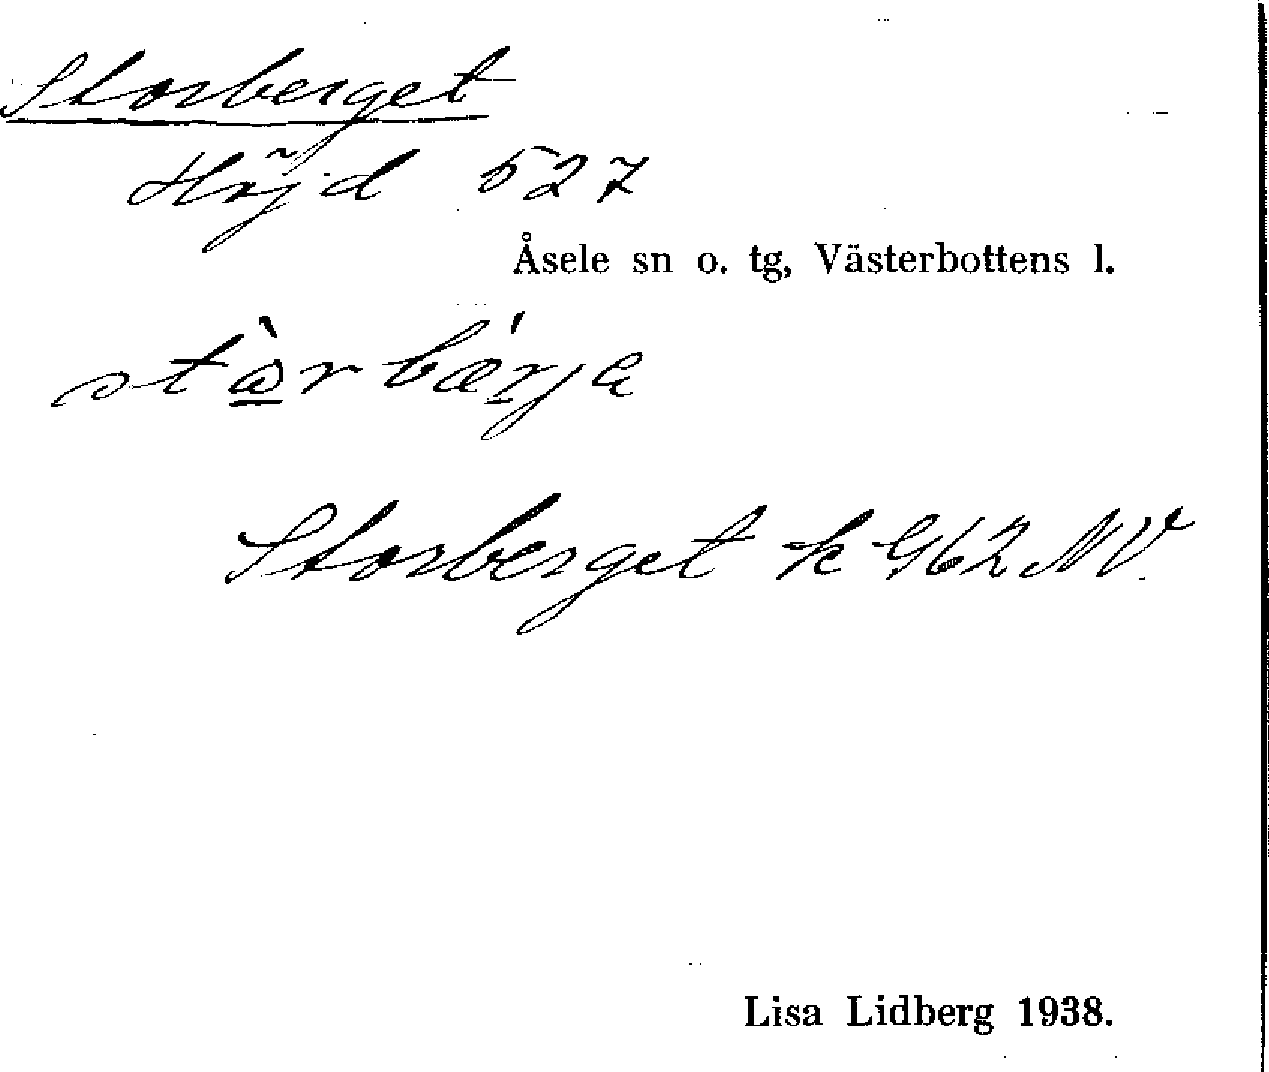 Storberget
Höjd 527
Åsele sn o. tg, Västerbottens l.
Storberget k 962 NV.
Lisa Lidberg 1938.